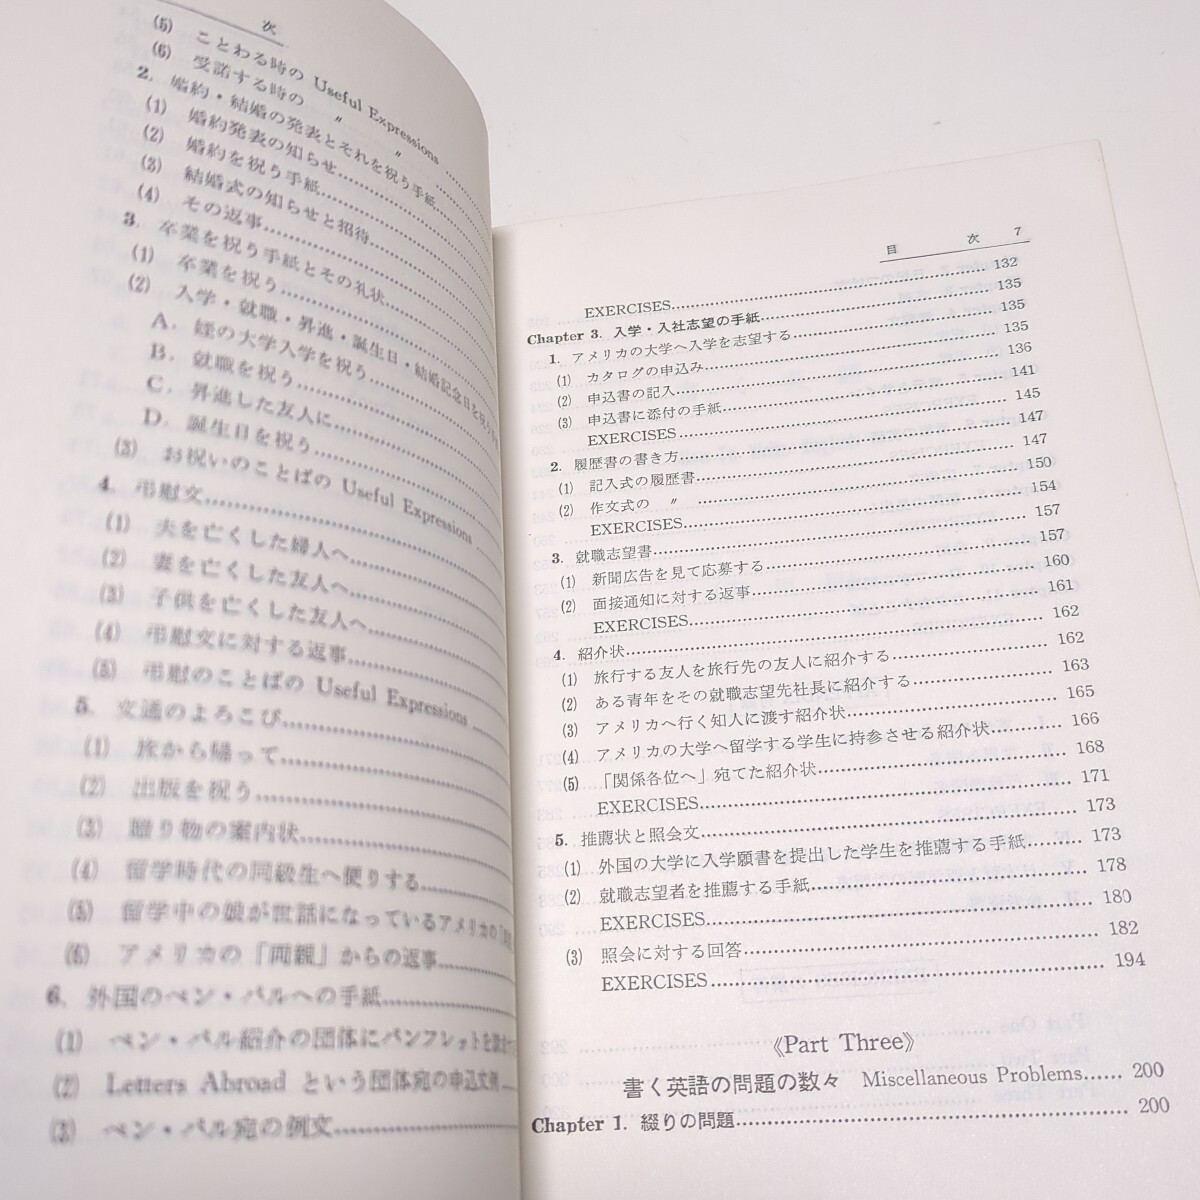 次
(5) ことわる時の Useful Expressions
(6) 受諾する時の 〃 〃
2. 婚約・結婚の発表とそれを祝う手紙
(1) 婚約発表の知らせ
(2) 婚約を祝う手紙
(3) 結婚式の知らせと招待
(4) その返事
3. 卒業を祝う手紙とその礼状
(1) 卒業を祝う
(2) 入学・就職・昇進・誕生日・結婚記念日を祝う
A. 姪の大学入学を祝う
B. 就職を祝う
C. 昇進した友人に
D. 誕生日を祝う
(3) お祝いのことばの Useful Expressions
4. 弔慰文
(1) 夫を亡くした婦人へ
(2) 妻を亡くした友人へ
(3) 子供を亡くした友人へ
(4) 弔慰文に対する返事
(5) 弔慰のことばの Useful Expressions
5. 文通のよろこび
(1) 旅から帰って
(2) 出版を祝う
(3) 贈り物の案内状
(4) 留学時代の同級生へ便りする
(5) 留学中の娘が世話になっているアメリカの
(6) アメリカの「両親」からの返事
6. 外国のペン・パルへの手紙
(1) ペン・パル紹介の団体にパンフレットを
(2) Letters Abroad という団体宛の申込文例
(3) ペン・パル宛の例文
目 次 7
EXERCISES 132
Chapter 3. 入学・入社志望の手紙 135
1. アメリカの大学へ入学を志望する 135
(1) カタログの申込み 135
(2) 申込書の記入 136
(3) 申込書に添付の手紙 141
EXERCISES 145
2. 履歴書の書き方 147
(1) 記入式の履歴書 147
(2) 作文式の 〃 150
EXERCISES 154
3. 就職志望書 157
(1) 新聞広告を見て応募する 157
(2) 面接通知に対する返事 160
EXERCISES 161
4. 紹介状 162
(1) 旅行する友人を旅行先の友人に紹介する 162
(2) ある青年をその就職志望先社長に紹介する 163
(3) アメリカへ行く知人に渡す紹介状 165
(4) アメリカの大学へ留学する学生に持参させる紹介状 166
(5) 「関係各位へ」宛てた紹介状 168
EXERCISES 171
5. 推薦状と照会文 173
(1) 外国の大学に入学願書を提出した学生を推薦する手紙 173
(2) 就職志望者を推薦する手紙 178
EXERCISES 180
(3) 照会に対する回答 182
EXERCISES 194
《Part Three》
書く英語の問題の数々 Miscellaneous Problems 200
Chapter 1. 綴りの問題 200